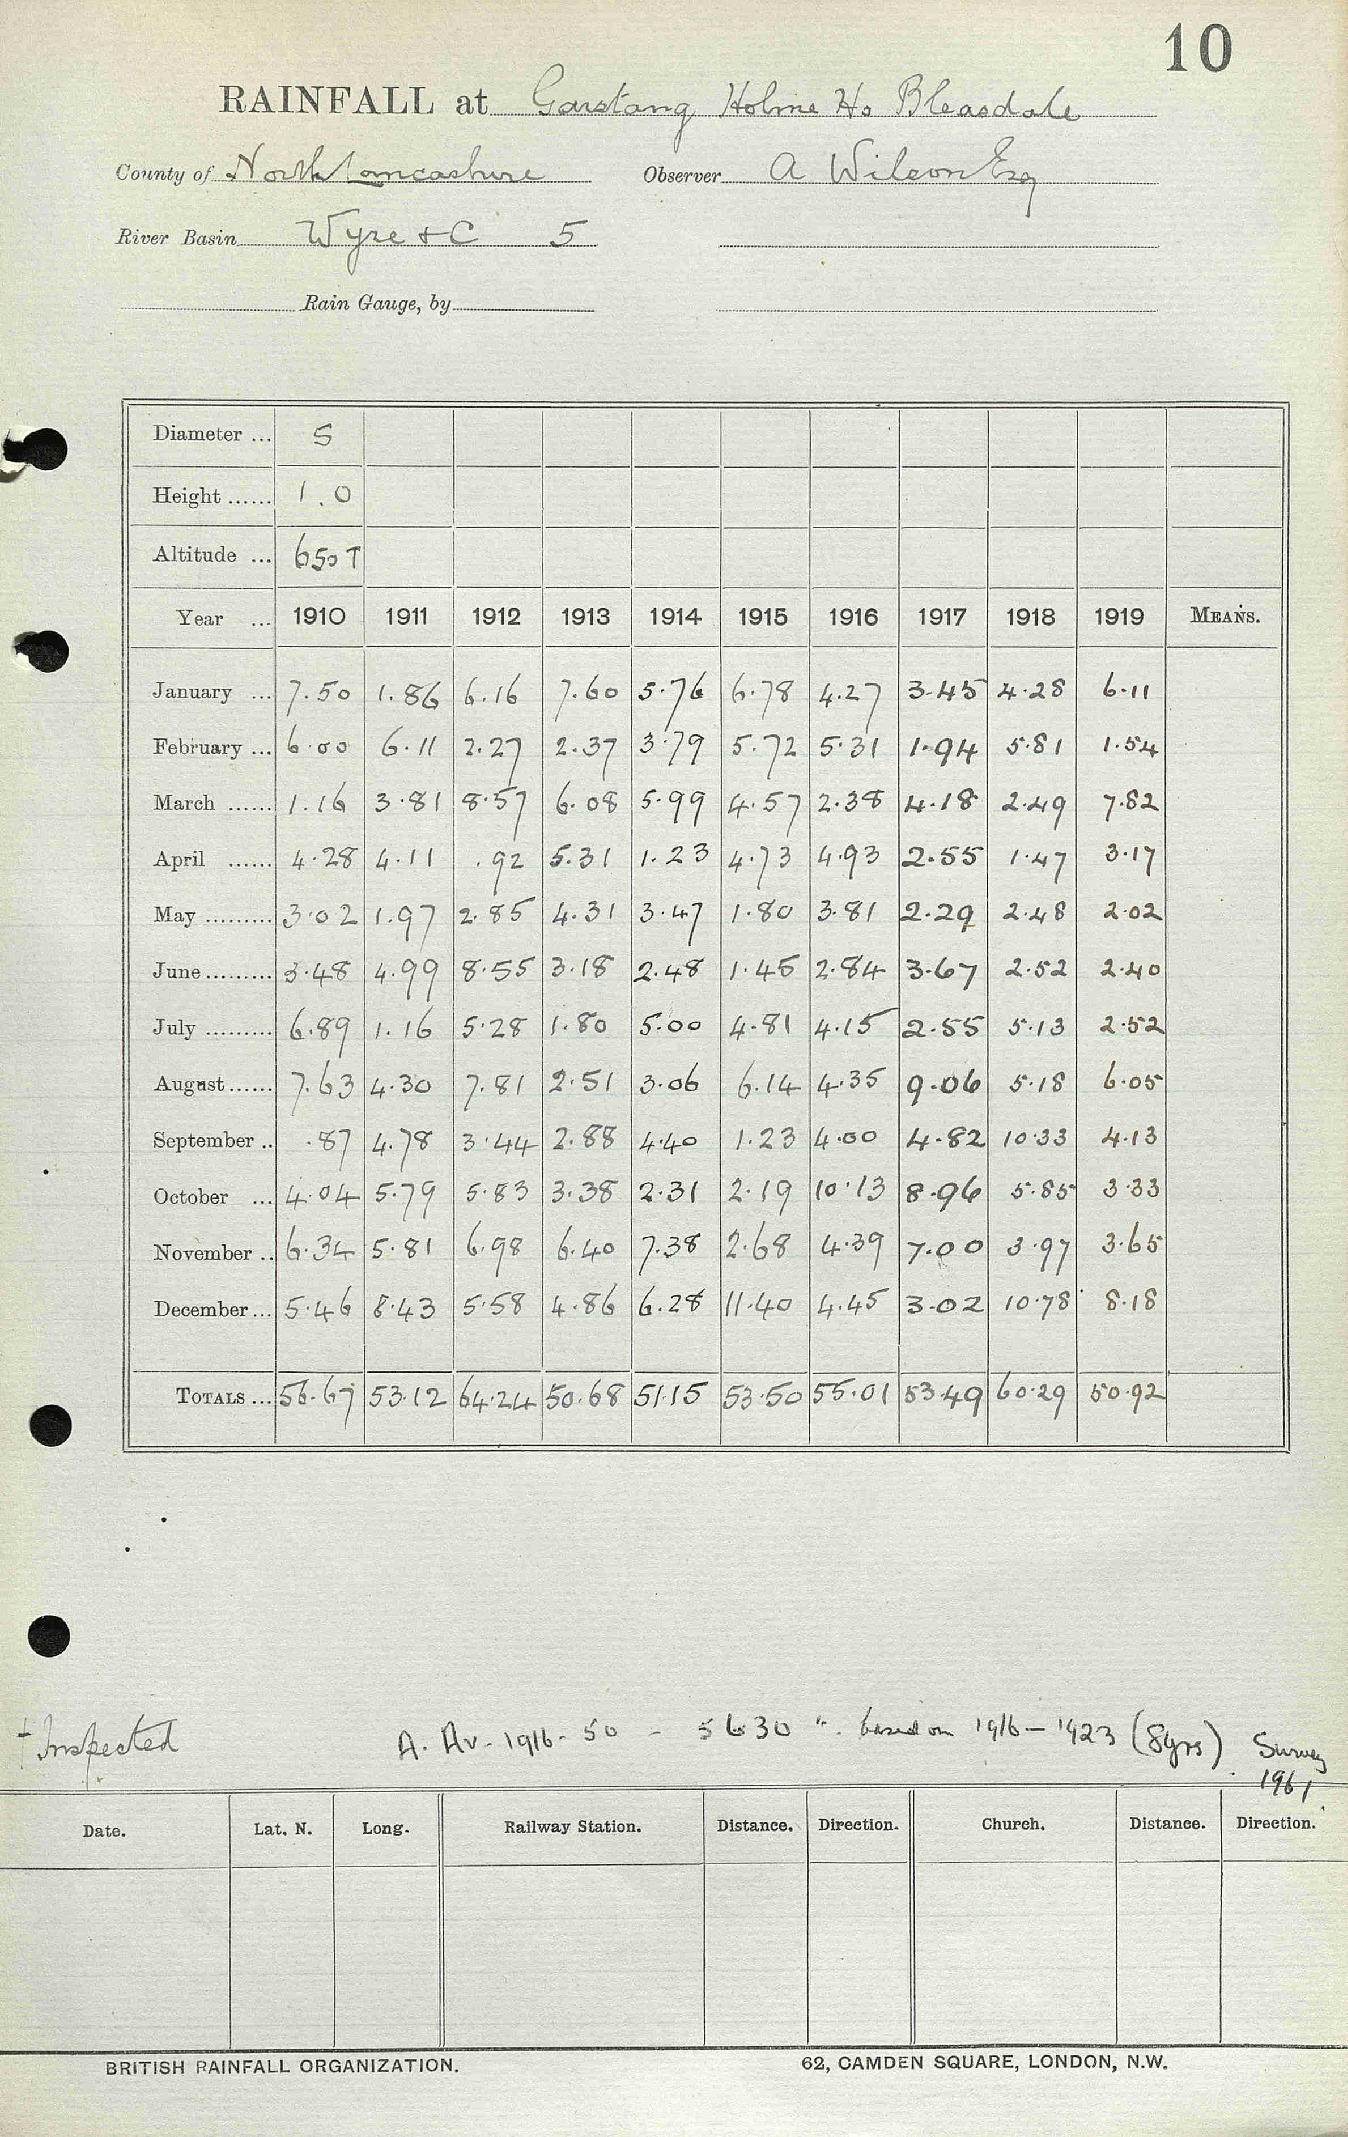 10
RAINFALL at Garstang Holme Ho Bleasdale
County of North Lancashire Observer A Wilson Esq
River Basin Wyre & C 5
Rain Gauge, by
Diameter ... 5
Height ...... 1.0
Altitude ... 650 T
Year ... 1910 1911 1912 1913 1914 1915 1916 1917 1918 1919 MEANS.
January ... 7.50 1.86 6.16 7.60 5.76 6.78 4.27 3.45 4.28 6.11
February ... 6.00 6.11 2.27 2.37 3.79 5.72 5.31 1.94 5.81 1.54
March ...... 1.16 3.81 8.57 6.08 5.99 4.57 2.38 4.18 2.49 7.82
April ...... 4.28 4.11 .92 5.31 1.23 4.73 4.93 2.55 1.47 3.17
May ......... 3.02 1.97 2.85 4.31 3.47 1.80 3.81 2.29 2.48 2.02
June ......... 3.48 4.99 8.55 3.18 2.48 1.45 2.84 3.67 2.52 2.40
July ......... 6.89 1.16 5.28 1.80 5.00 4.81 4.15 2.55 5.13 2.52
August ...... 7.63 4.30 7.81 2.51 3.06 6.14 4.35 9.06 5.18 6.05
September .. .87 4.78 3.44 2.88 4.40 1.23 4.00 4.82 10.33 4.13
October ... 4.04 5.79 5.83 3.38 2.31 2.19 10.13 8.96 5.85 3.33
November .. 6.34 5.81 6.98 6.40 7.38 2.68 4.39 7.00 3.97 3.65
December ... 5.46 8.43 5.58 4.86 6.28 11.40 4.45 3.02 10.78 8.18
TOTALS ... 56.67 53.12 64.24 50.68 51.15 53.50 55.01 53.49 60.29 50.92
† Inspected
A. Av. 1916-50 - 56.30 ". based on 1916-1923 (8yrs) Survey
1961
Date. Lat. N. Long. Railway Station. Distance. Direction. Church. Distance. Direction.
BRITISH RAINFALL ORGANIZATION. 62, CAMDEN SQUARE, LONDON, N.W.